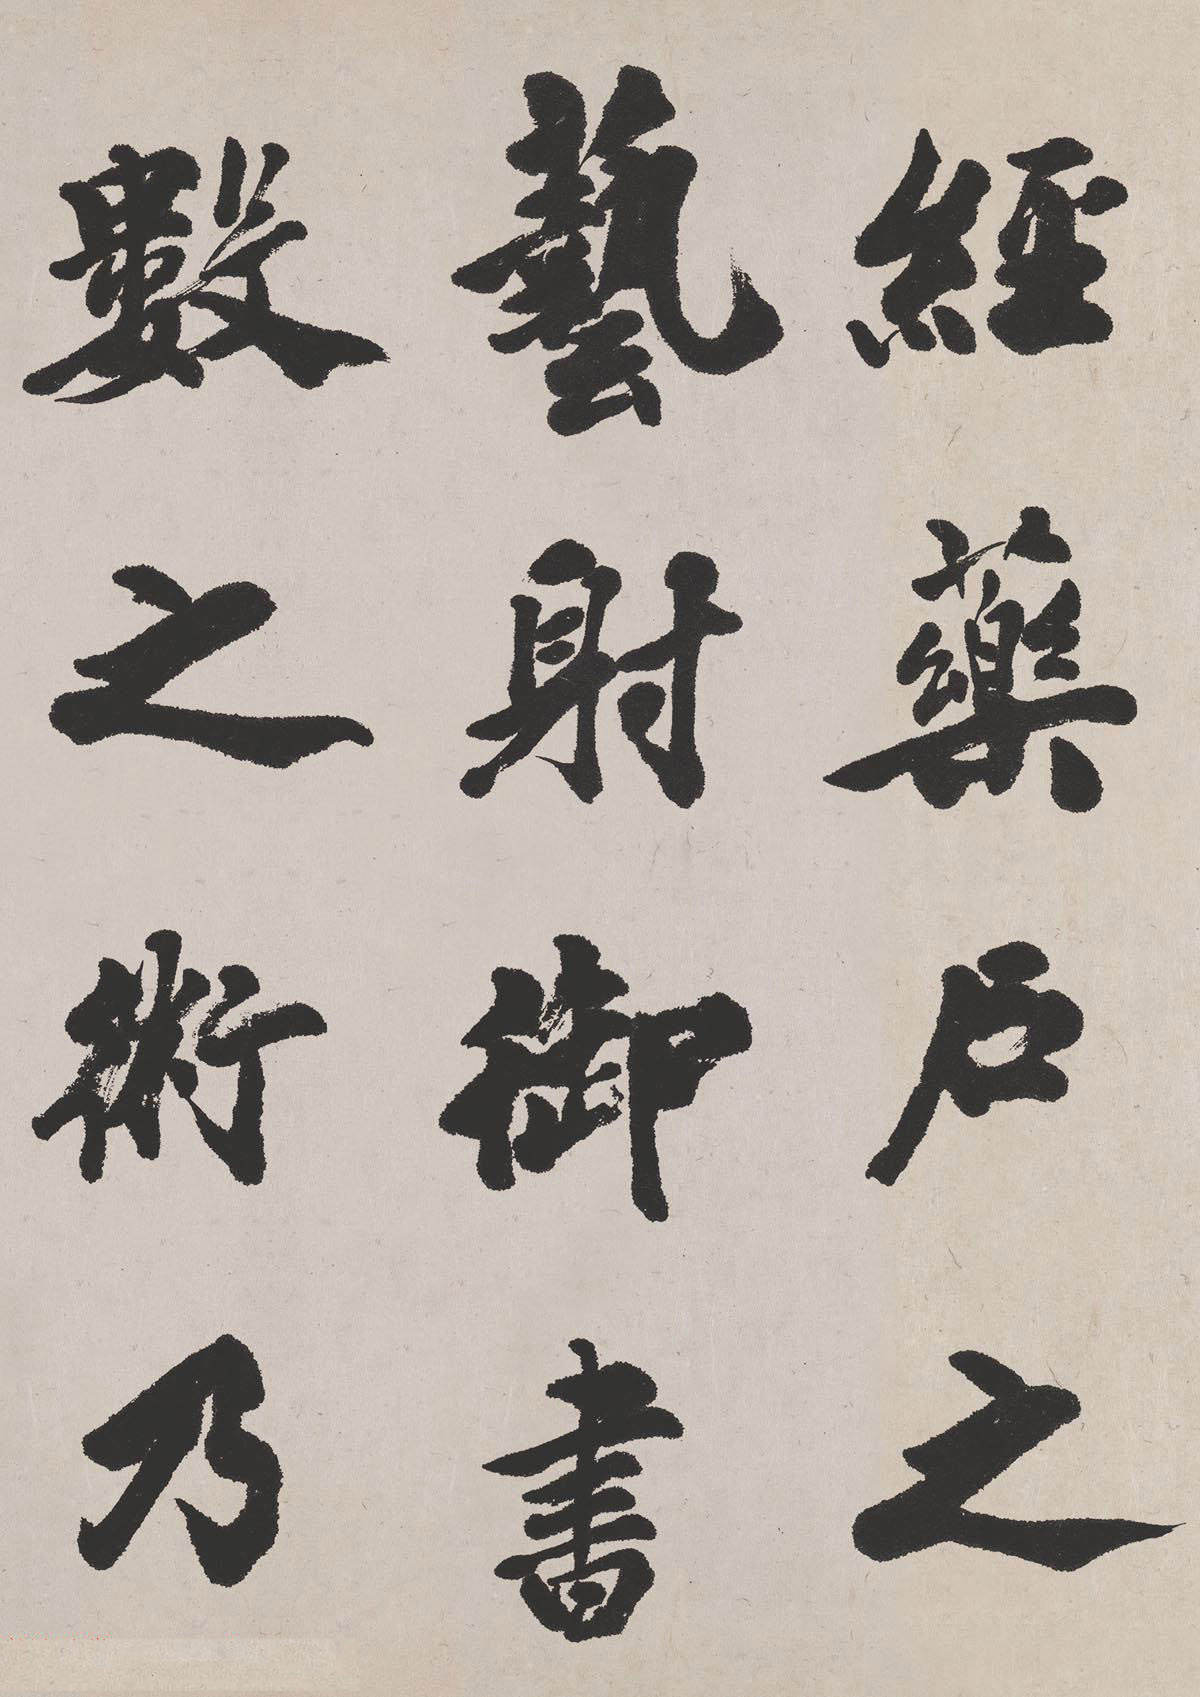 經藥石之
藝射御書
數之術乃